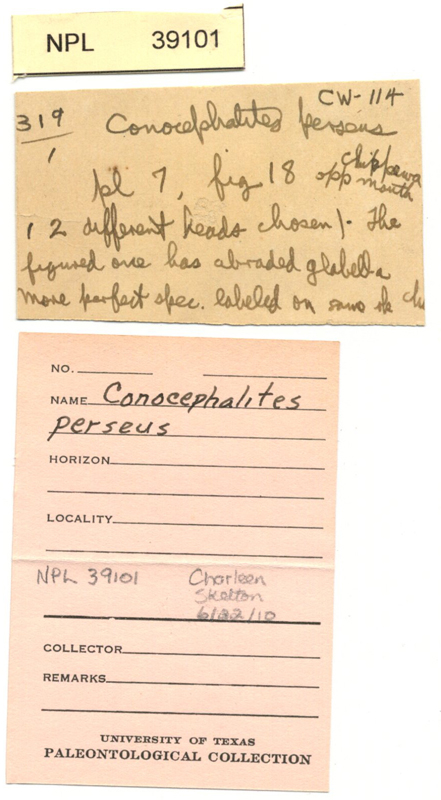 NPL 39101
CW-114
319
1
Conocephalites perseus
pl 7, fig 18 opp mouth
chippewa
( 2 different heads chosen). The
figured one has abraded glabella
more perfect spec. labeled on same
NO.
NAME Conocephalites
perseus
HORIZON
LOCALITY
NPL 39101 Charleen
Skelton
6/22/10
COLLECTOR
REMARKS
UNIVERSITY OF TEXAS
PALEONTOLOGICAL COLLECTION